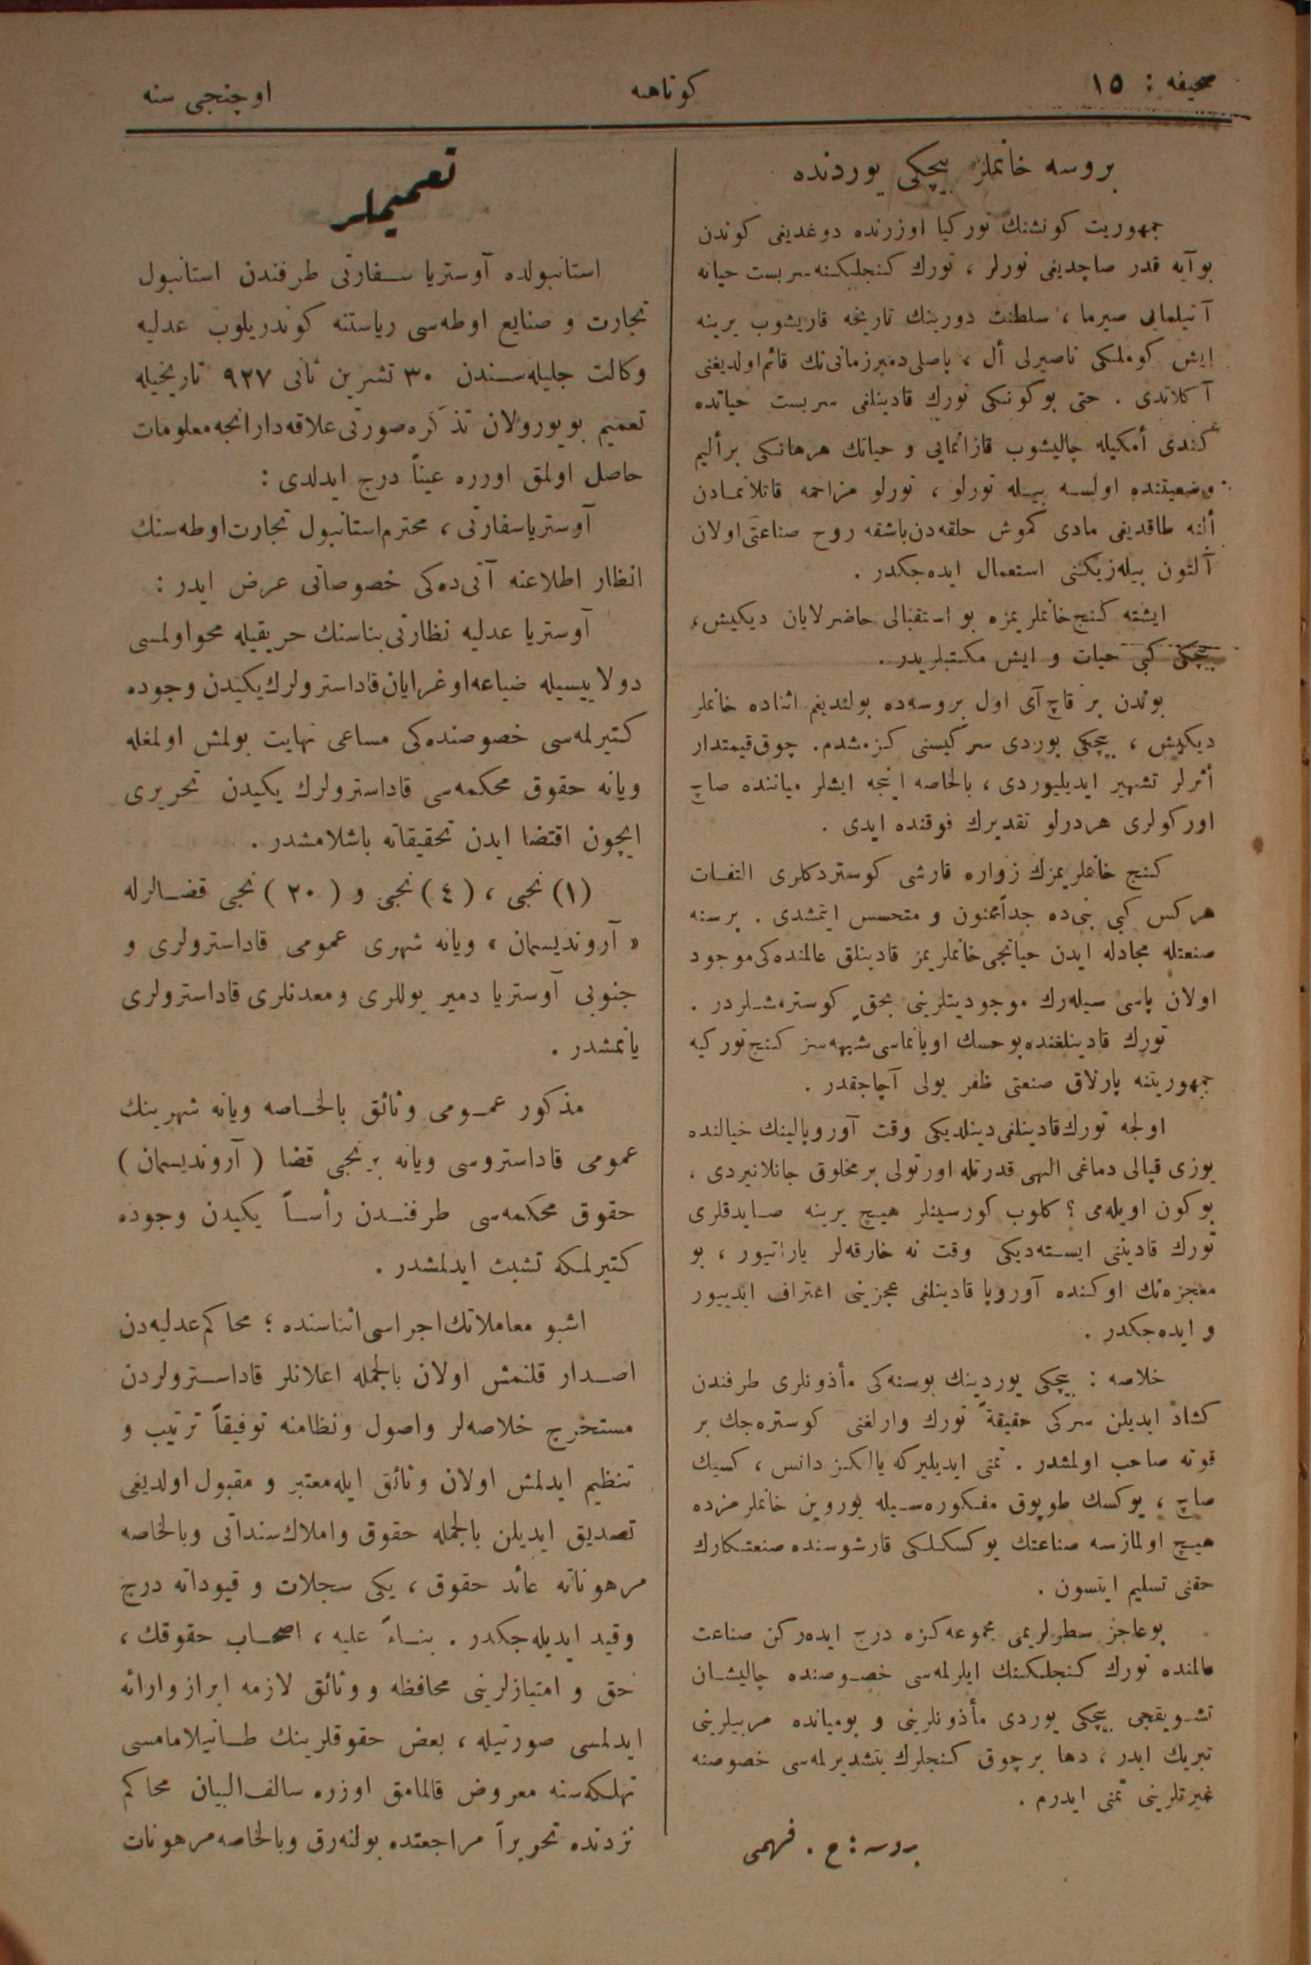 صحیفه : ١٥
كوتاهیه
اوچنجی سنه
بروسه خانملر بیچكی یوردنده
جمهوریت كونشنك توركیا اوزرنده دوغدیغی كوندن
بوآنه قدر صاچدیغی نورلر ، تورك كنجلیكنه سربست حیاته
آتیلمایی صیرما ، سلطنت دورینك تاریخه قاریشوب یرینه
ایش كوملكی ناصیرلی أل ، پاصلی دمیرزمانی‌نك قائم اولدیغنی
آكلاتدی . حتی بوكونكی تورك قادینلغی سربست حیاتده
كندی أمكیله چالیشوب قازانمایی و حیاتك هرهانكی برألیم
وضعیتنده اولسه بیله تورلو ، تورلو مزاحمه قاتلانمادن
ألنه طاقدیغی مادی كموش حلقه‌دن‌باشقه روح صناعتی‌اولان
آلتون بیله‌زیكنی استعمال ایده‌جكدر .
ایشته كنج‌خانملریمزه بو استقبالی حاضرلایان دیكیش،
بیچكی كبی حیات و ایش مكتبلریدر .
بوندن بر قاچ‌آی اول بروسه‌ده بولندیغم اثناده خانملر
دیكیش ، بیچكی یوردی سركیسنی كزمشدم. چوق‌قیمتدار
أثرلر تشهیر ایدیلیوردی ، بالخاصه اینجه ایشلر میاننده صاچ
اوركولری هردرلو تقدیرك فوقنده ایدی .
كنج خانملریمزك زواره قارشی كوستردكلری التفات
هركس كبی بنی‌ده جداًممنون و متحسس ایتمشدی . برسنه
صنعتله مجادله ایدن حیاتجی‌خانملریمز قادینلق عالمنده‌كی‌موجود
اولان پاسی سیله‌رك موجودیتلرینی بحقٍ كوسترمشلردر .
تورك قادینلغنده‌بوحسك اویانماسی‌شبهه‌سز كنج‌توركیه
جمهوریتنه پارلاق صنعتی ظفر یولی آچاجقدر .
اولجه تورك‌قادینلغی‌دینلدیكی وقت آوروپالینك خیالنده
یوزی قپالی دماغی الهی قدرتله اورتولی برمخلوق جانلانیردی .
بوكون اویله‌می ؟ كلوب كورسینلر هیچ یرینه صایدقلری
تورك قادینی ایسته‌دیكی وقت نه خارقه‌لر یاراتیور ، بو
معجزه‌نك اوكنده آوروپا قادینلغی عجزینی اعتراف ایدییور
و ایده‌جكدر .
خلاصه : بیچكی یوردینك بوسنه‌كی مأذونلری طرفندن
كشاد ایدیلن سركی حقیقةً تورك وارلغنی كوستره‌جك بر
قوته صاحب اولمشدر . تمنی ایدیلیركه یالكز دانس ، كسیك
صاچ ، یوكسك طوپوق مفكوره‌سیله یوروین خانملرمزده
هیچ اولمازسه صناعتك یوكسكلكی قارشوسنده صنعتكارك
حقنی تسلیم ایتسون .
بوعاجز سطرلریمی مجموعه‌كزه درج ایده‌ركن صناعت
عالمنده تورك كنجلیكنك ایلرلمه‌سی خصوصنده چالیشان
تشویقجی بیچكی یوردی مأذونلرینی و بومیانده مربیلرینی
تبریك ایدر ، دها برچوق كنجلرك یتشدیرلمه‌سی خصوصنه
غیرتلرینی تمنی ایدرم .
بروسه : ح . فهمی
تعمیملر
استانبولده آوستریا سفارتی طرفندن استانبول
تجارت و صنایع اوطه‌سی ریاستنه كوندریلوب عدلیه
وكالت جلیله‌سندن ٣٠ تشرین ثانی ٩٢٧ تاریخیله
تعمیم بویورولان تذكره‌صورتی‌علاقه‌دارانجه‌معلومات
حاصل اولمق اورره عیناً درج ایدلدی :
آوستریاسفارتی ، محترم‌استانبول تجارت‌اوطه‌سنك
انظار اطلاعنه آتی‌ده‌كی خصوصاتی عرض ایدر :
آوستریا عدلیه نظارتی‌بناسنك حریقیله محواولمسی
دولاییسیله ضیاعه‌اوغرایان‌قاداسترولرك‌یكیدن وجوده
كتیرلمه‌سی خصوصنده‌كی مساعی نهایت بولمش اولمغله
ویانه حقوق محكمه‌سی قاداسترولرك یكیدن تحریری
ایچون اقتضا ایدن تحقیقاته باشلامشدر .
(١) نجی ، (٤) نجی و (٢٠) نجی قضالرله
« آروندیسمان » ویانه شهری عمومی قاداسترولری و
جنوبی آوستریا دمیر یوللری ومعدنلری قاداسترولری
یانمشدر .
مذكور عمومی وثائق بالخاصه ویانه شهرینك
عمومی قاداستروسی ویانه برنجی قضا (آروندیسمان)
حقوق محكمه‌سی طرفندن رأساً یكیدن وجوده
كتیرلمكه تشبث ایدلمشدر .
اشبو معاملاتك‌اجراسی‌اثناسنده ؛ محاكم‌عدلیه‌دن
اصدار قلنمش اولان بالجمله اعلانلر قاداسترولردن
مستخرج خلاصه‌لر واصول ونظامنه توفیقاً ترتیب و
تنظیم ایدلمش اولان وثائق ایله‌معتبر و مقبول اولدیغی
تصدیق ایدیلن بالجمله حقوق واملاك‌سنداتی وبالخاصه
مرهوناته عائد حقوق ، یكی سجلات و قیوداته درج
وقید ایدیله‌جكدر . بناءً علیه ، اصحاب حقوقك ،
حق و امتیازلرینی محافظه و وثائق لازمه ابراز وارائه
ایدلمسی صورتیله ، بعض حقوقلرینك طانیلامامسی
تهلكه‌سنه معروض قالمامق اوزره سالف‌البیان محاكم
نزدنده تحریراً مراجعتده بولنه‌رق وبالخاصه‌مرهونات